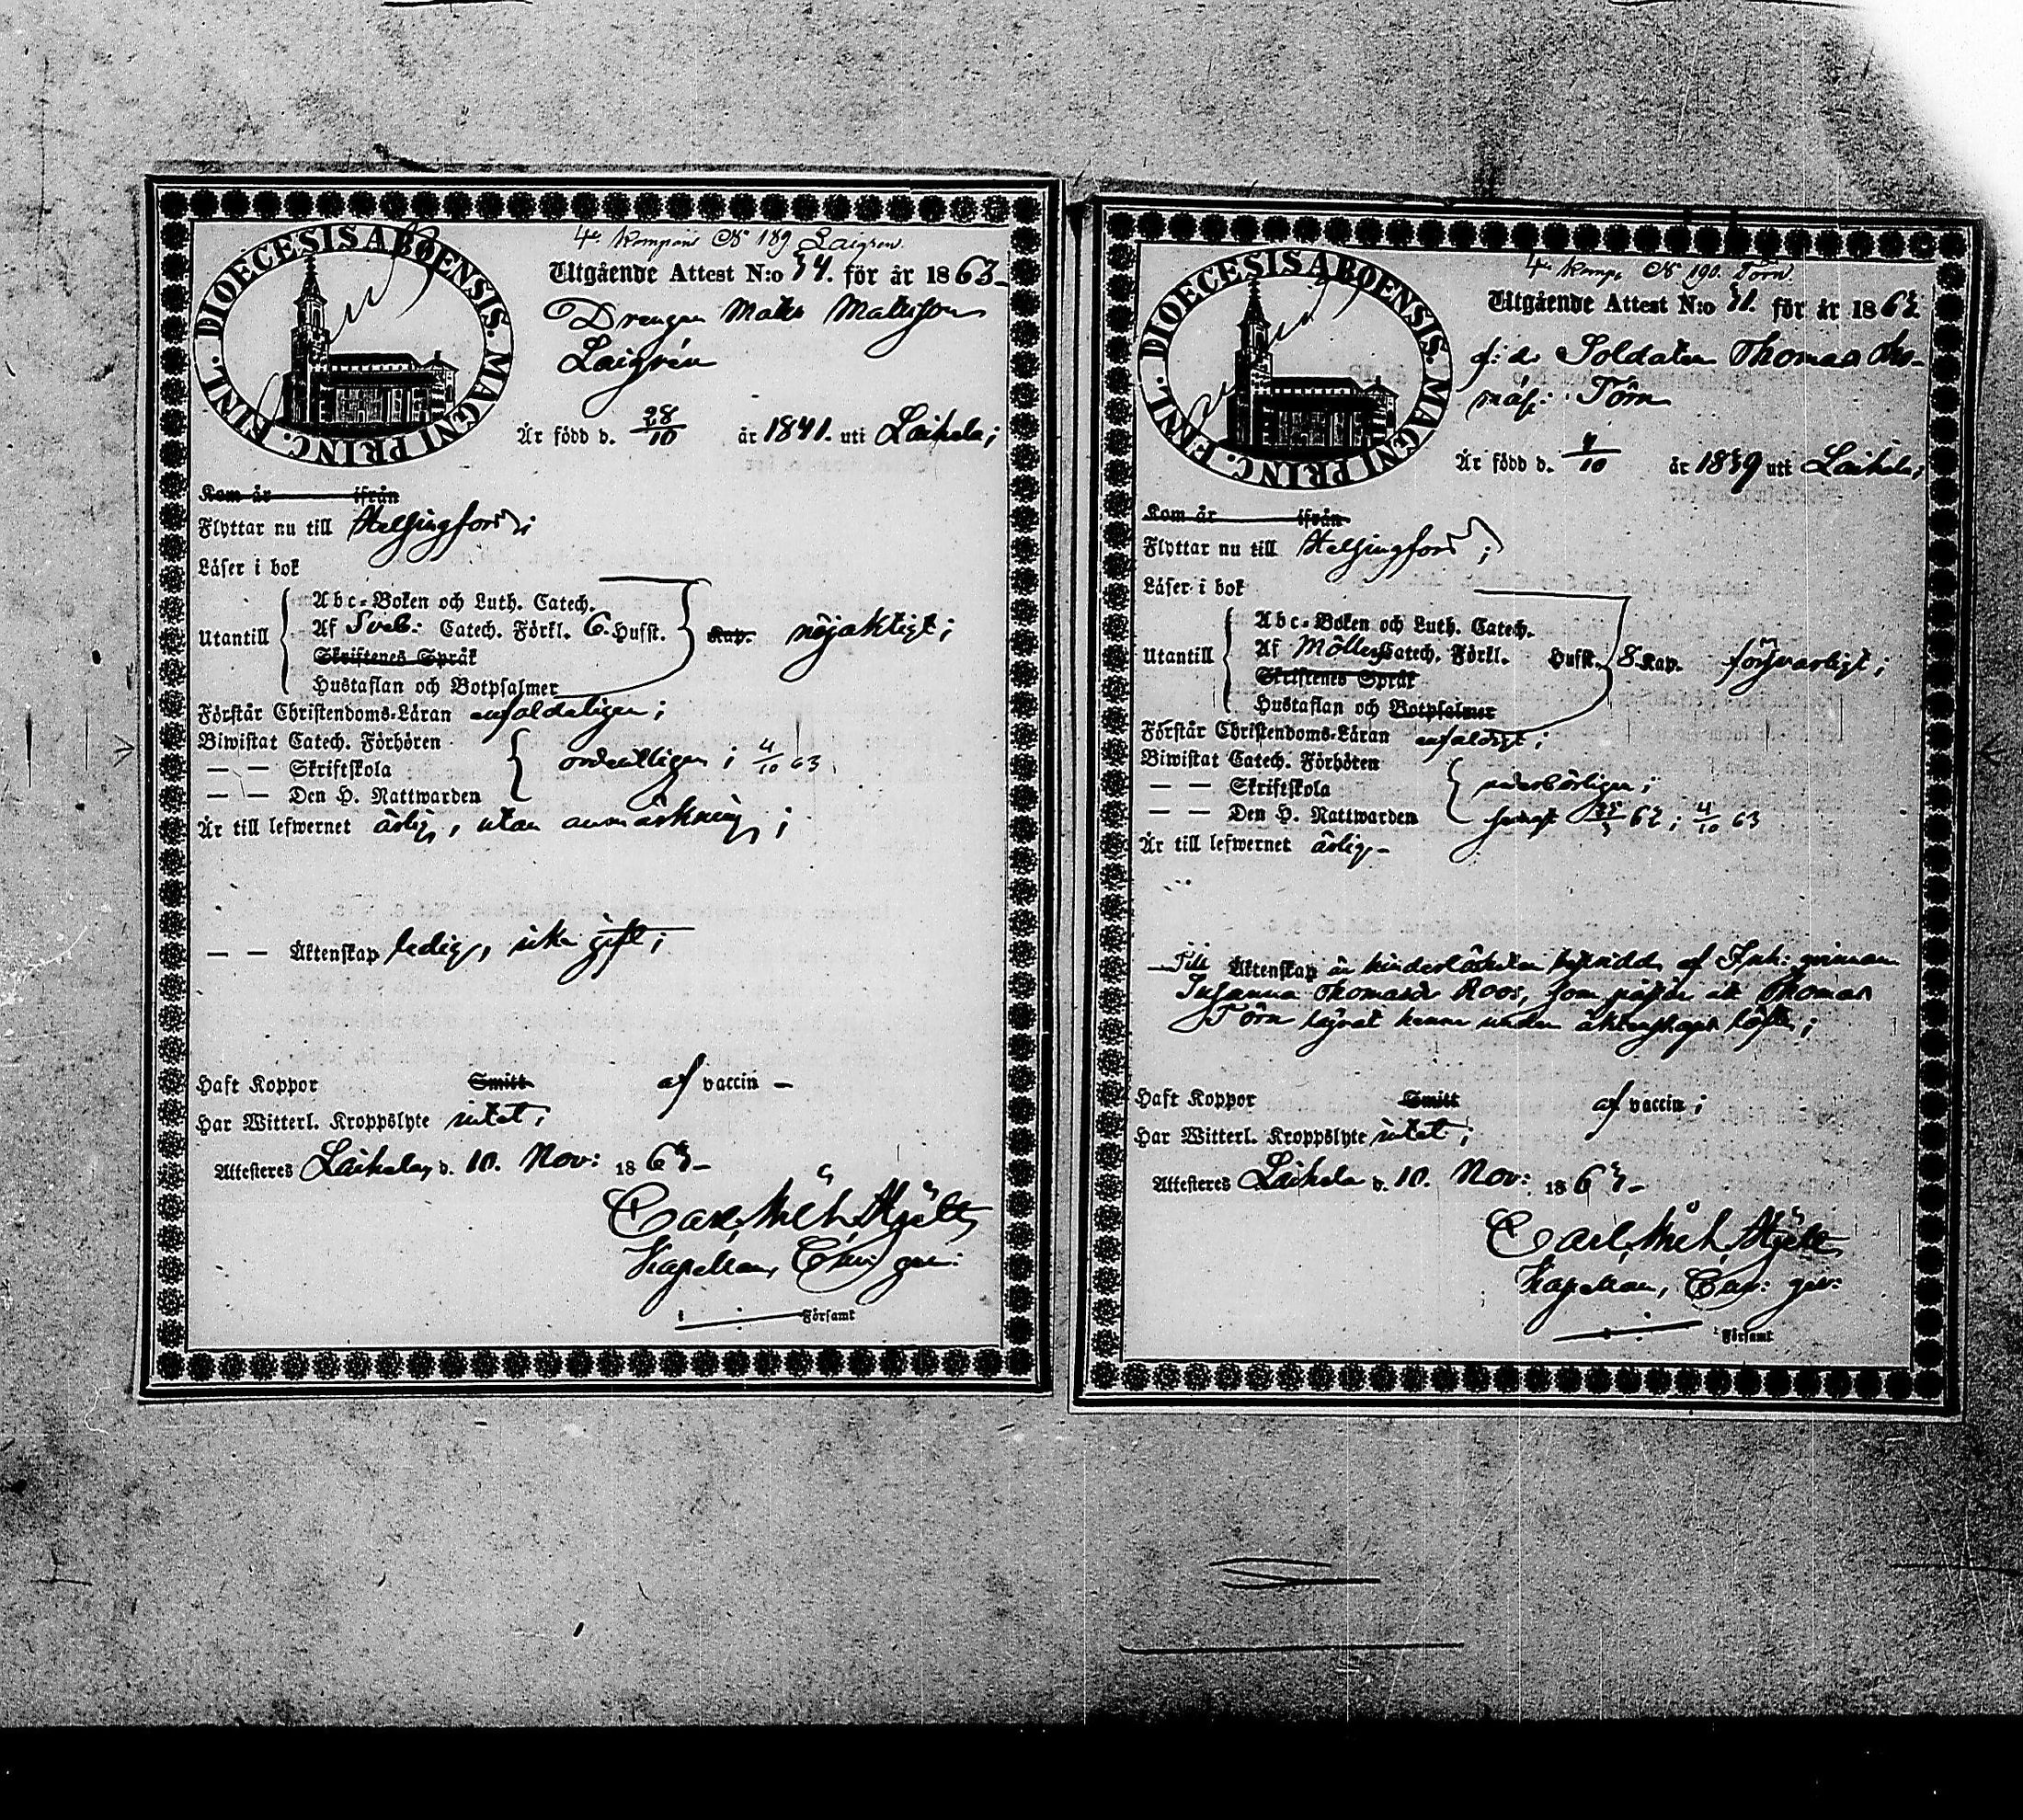 DIOECESIS ABOENSIS. MAGNI PRINC. FINL.
4e Kompani No 189 Laigren.
Utgående Attest N:o 34. för år 1863
Drengen Mats Mattsson
Laigrén
Är född d. 28/10 år 1841. uti Laihela;
Kom år ifrån
Flyttar nu till Helsingfors;
Läser i bok
Abc-Boken och Luth. Catech.
Utantill Af Sveb: Catech. Förkl. 6. Husst. Kap. nöjaktigt;
Skriftenes Språk
Hustaflan och Botpsalmer
Förstår Christendoms-Läran enfaldeligen;
Biwistat Catech. Förhören
— — Skriftskola ordentligen; 4/10 63
— — Den H. Nattwarden
Är till lefwernet ärlig, utan anmärkning;
— — Äktenskap ledig, icke gift;
Haft Koppor Smitt af vaccin —
Har Witterl. Kroppslyte intet;
Attesteres Laihela, d. 10. Nov: 1863
Carl Mich Hjelt
Kapellan,
Församl
DIOECESIS ABOENSIS. MAGNI PRINC. FINL.
4e Komp. No 190. Törn.
Utgående Attest N:o 31. för år 1863
f: d. Soldaten Thomas Tho-
mass: Törn
Är född d. 4/10 år 1839 uti Laihela;
Kom år ifrån
Flyttar nu till Helsingfors;
Läser i bok
Abc-Boken och Luth. Catech.
Utantill Af Möllers Catech. Förkl. Husst. 8 Kap. försvarligt;
Skriftenes Språk
Hustaflan och Botpsalmer
Förstår Christendoms-Läran enfaldigt;
Biwistat Catech. Förhören
— — Skriftskola vederbörligen;
— — Den H. Nattwarden senast 62; 4/10 63
Är till lefwernet ärlig-
Till Äktenskap är hinderlösheten bestridd af Inh: qvinnan
Susanna Thomasdr Roos, som påstår att Thomas
Törn lägrat henne under äktenskaps löfte;
Haft Koppor Smitt af vaccin;
Har Witterl. Kroppslyte intet;
Attesteres Laihela d. 10. Nov: 1863
Carl Mich Hjelt
Kapellan,
Församl